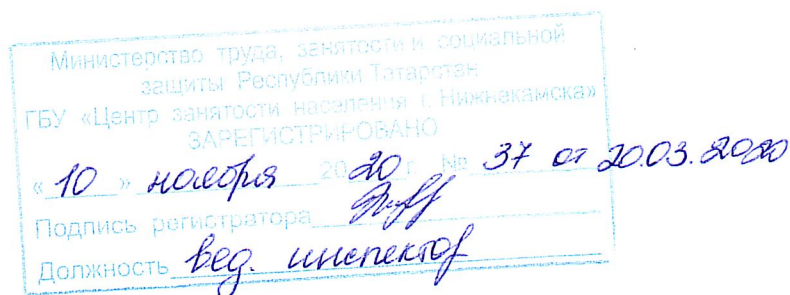 Министерство труда, занятости и социальной
защиты Республики Татарстан
ГБУ «Центр занятости населения г. Нижнекамска»
ЗАРЕГИСТРИРОВАНО
« 10 » ноября 2020 г. № 37 от 20.03.2020
Подпись регистратора
Должность вед. инспектор